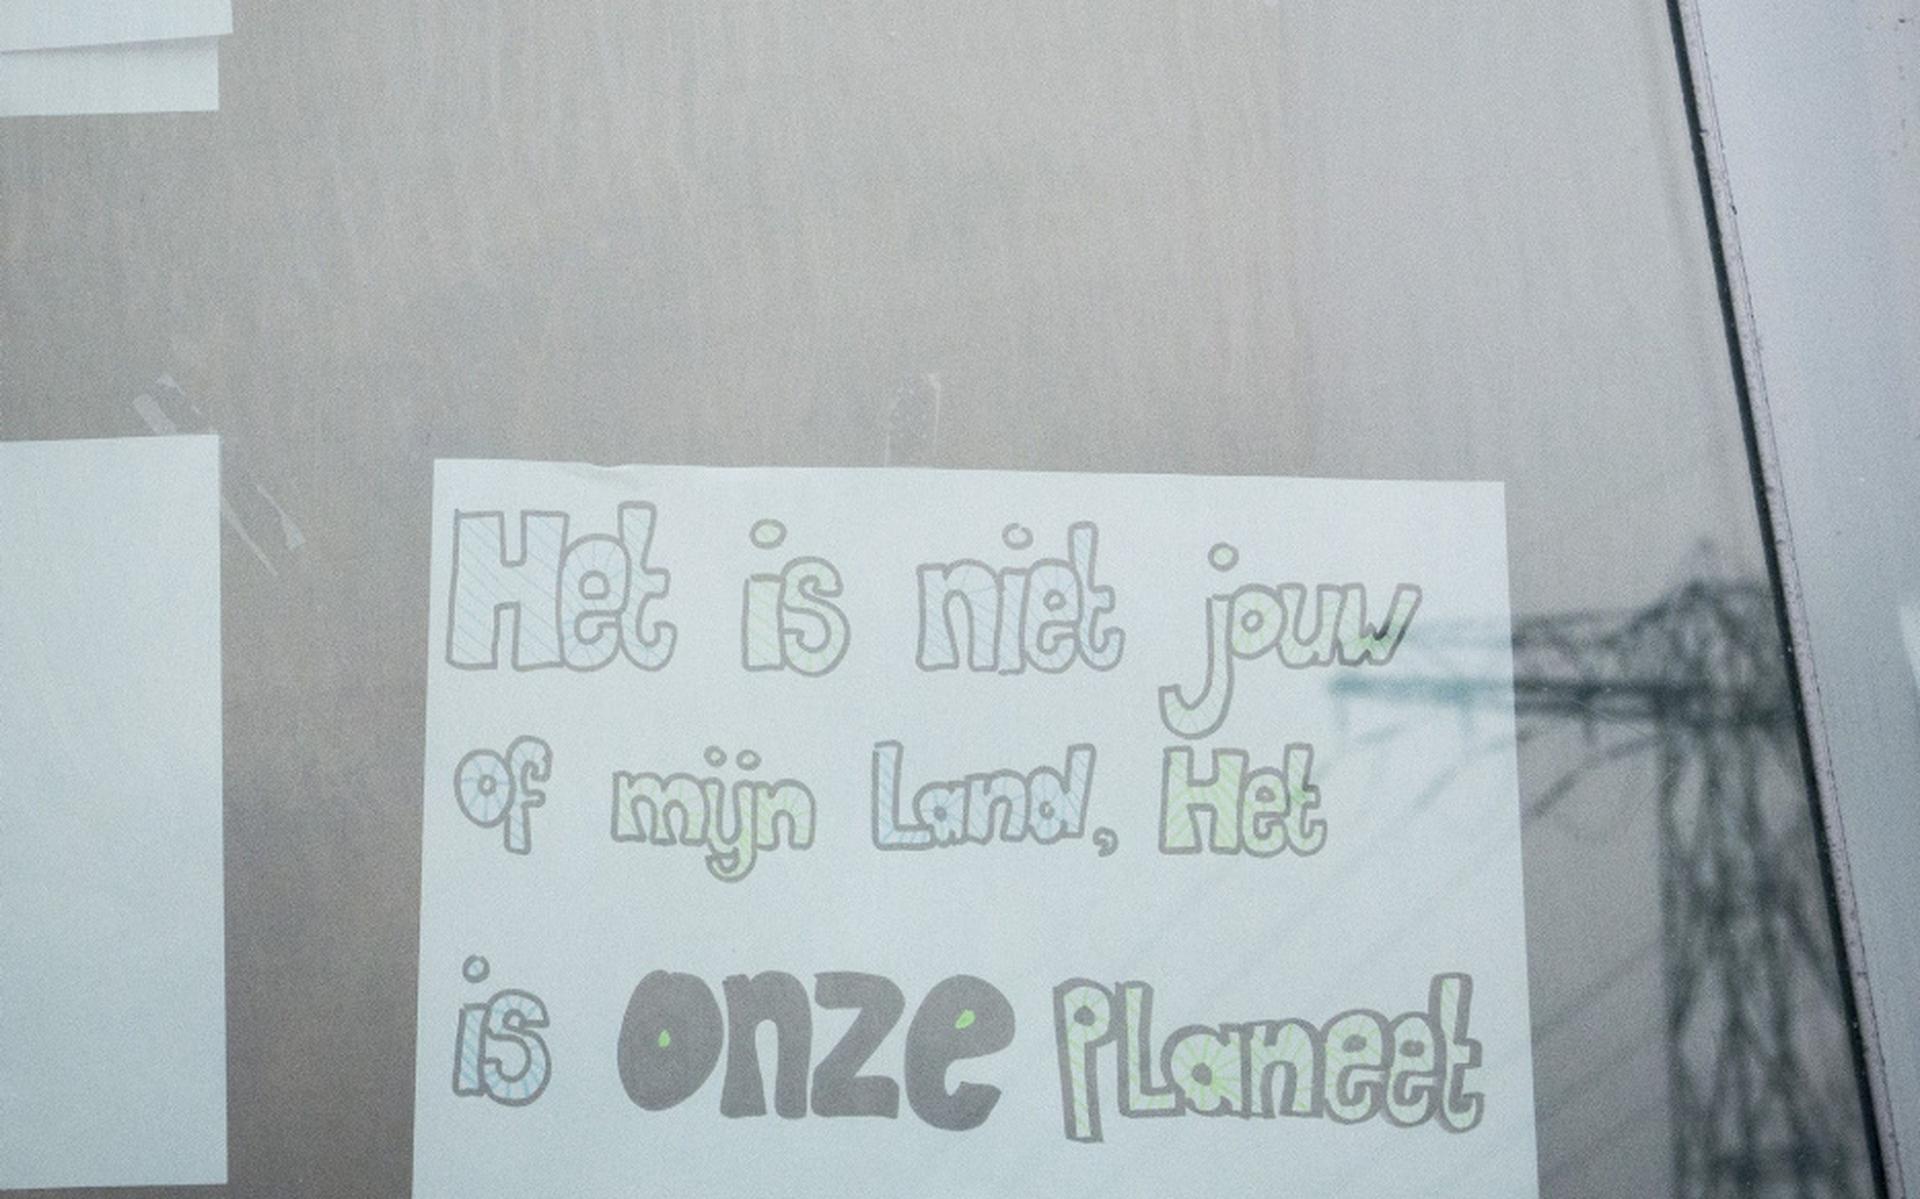 Het is niet jouw
of mijn Land, Het
is onze PLaneet